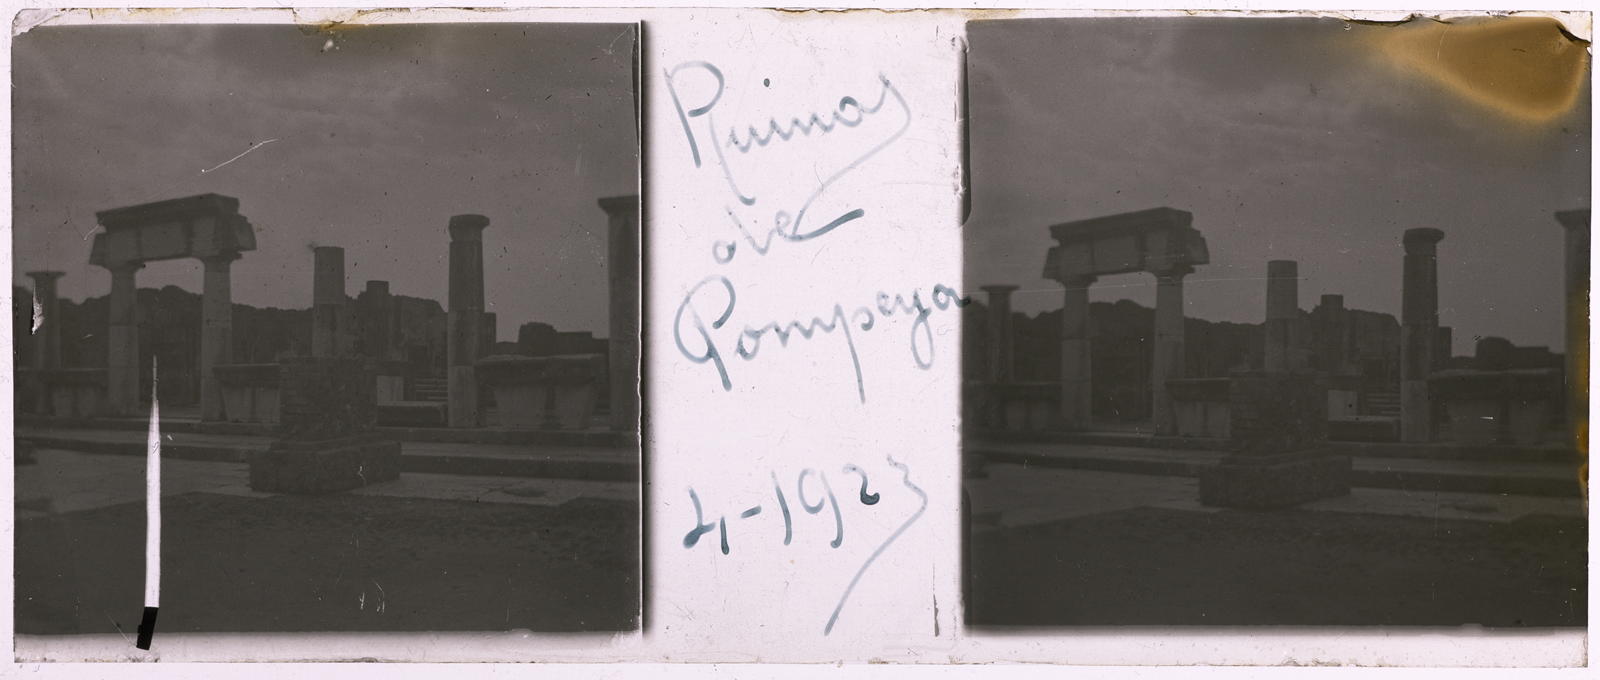 Ruinas
de
Pompeya
4-1923